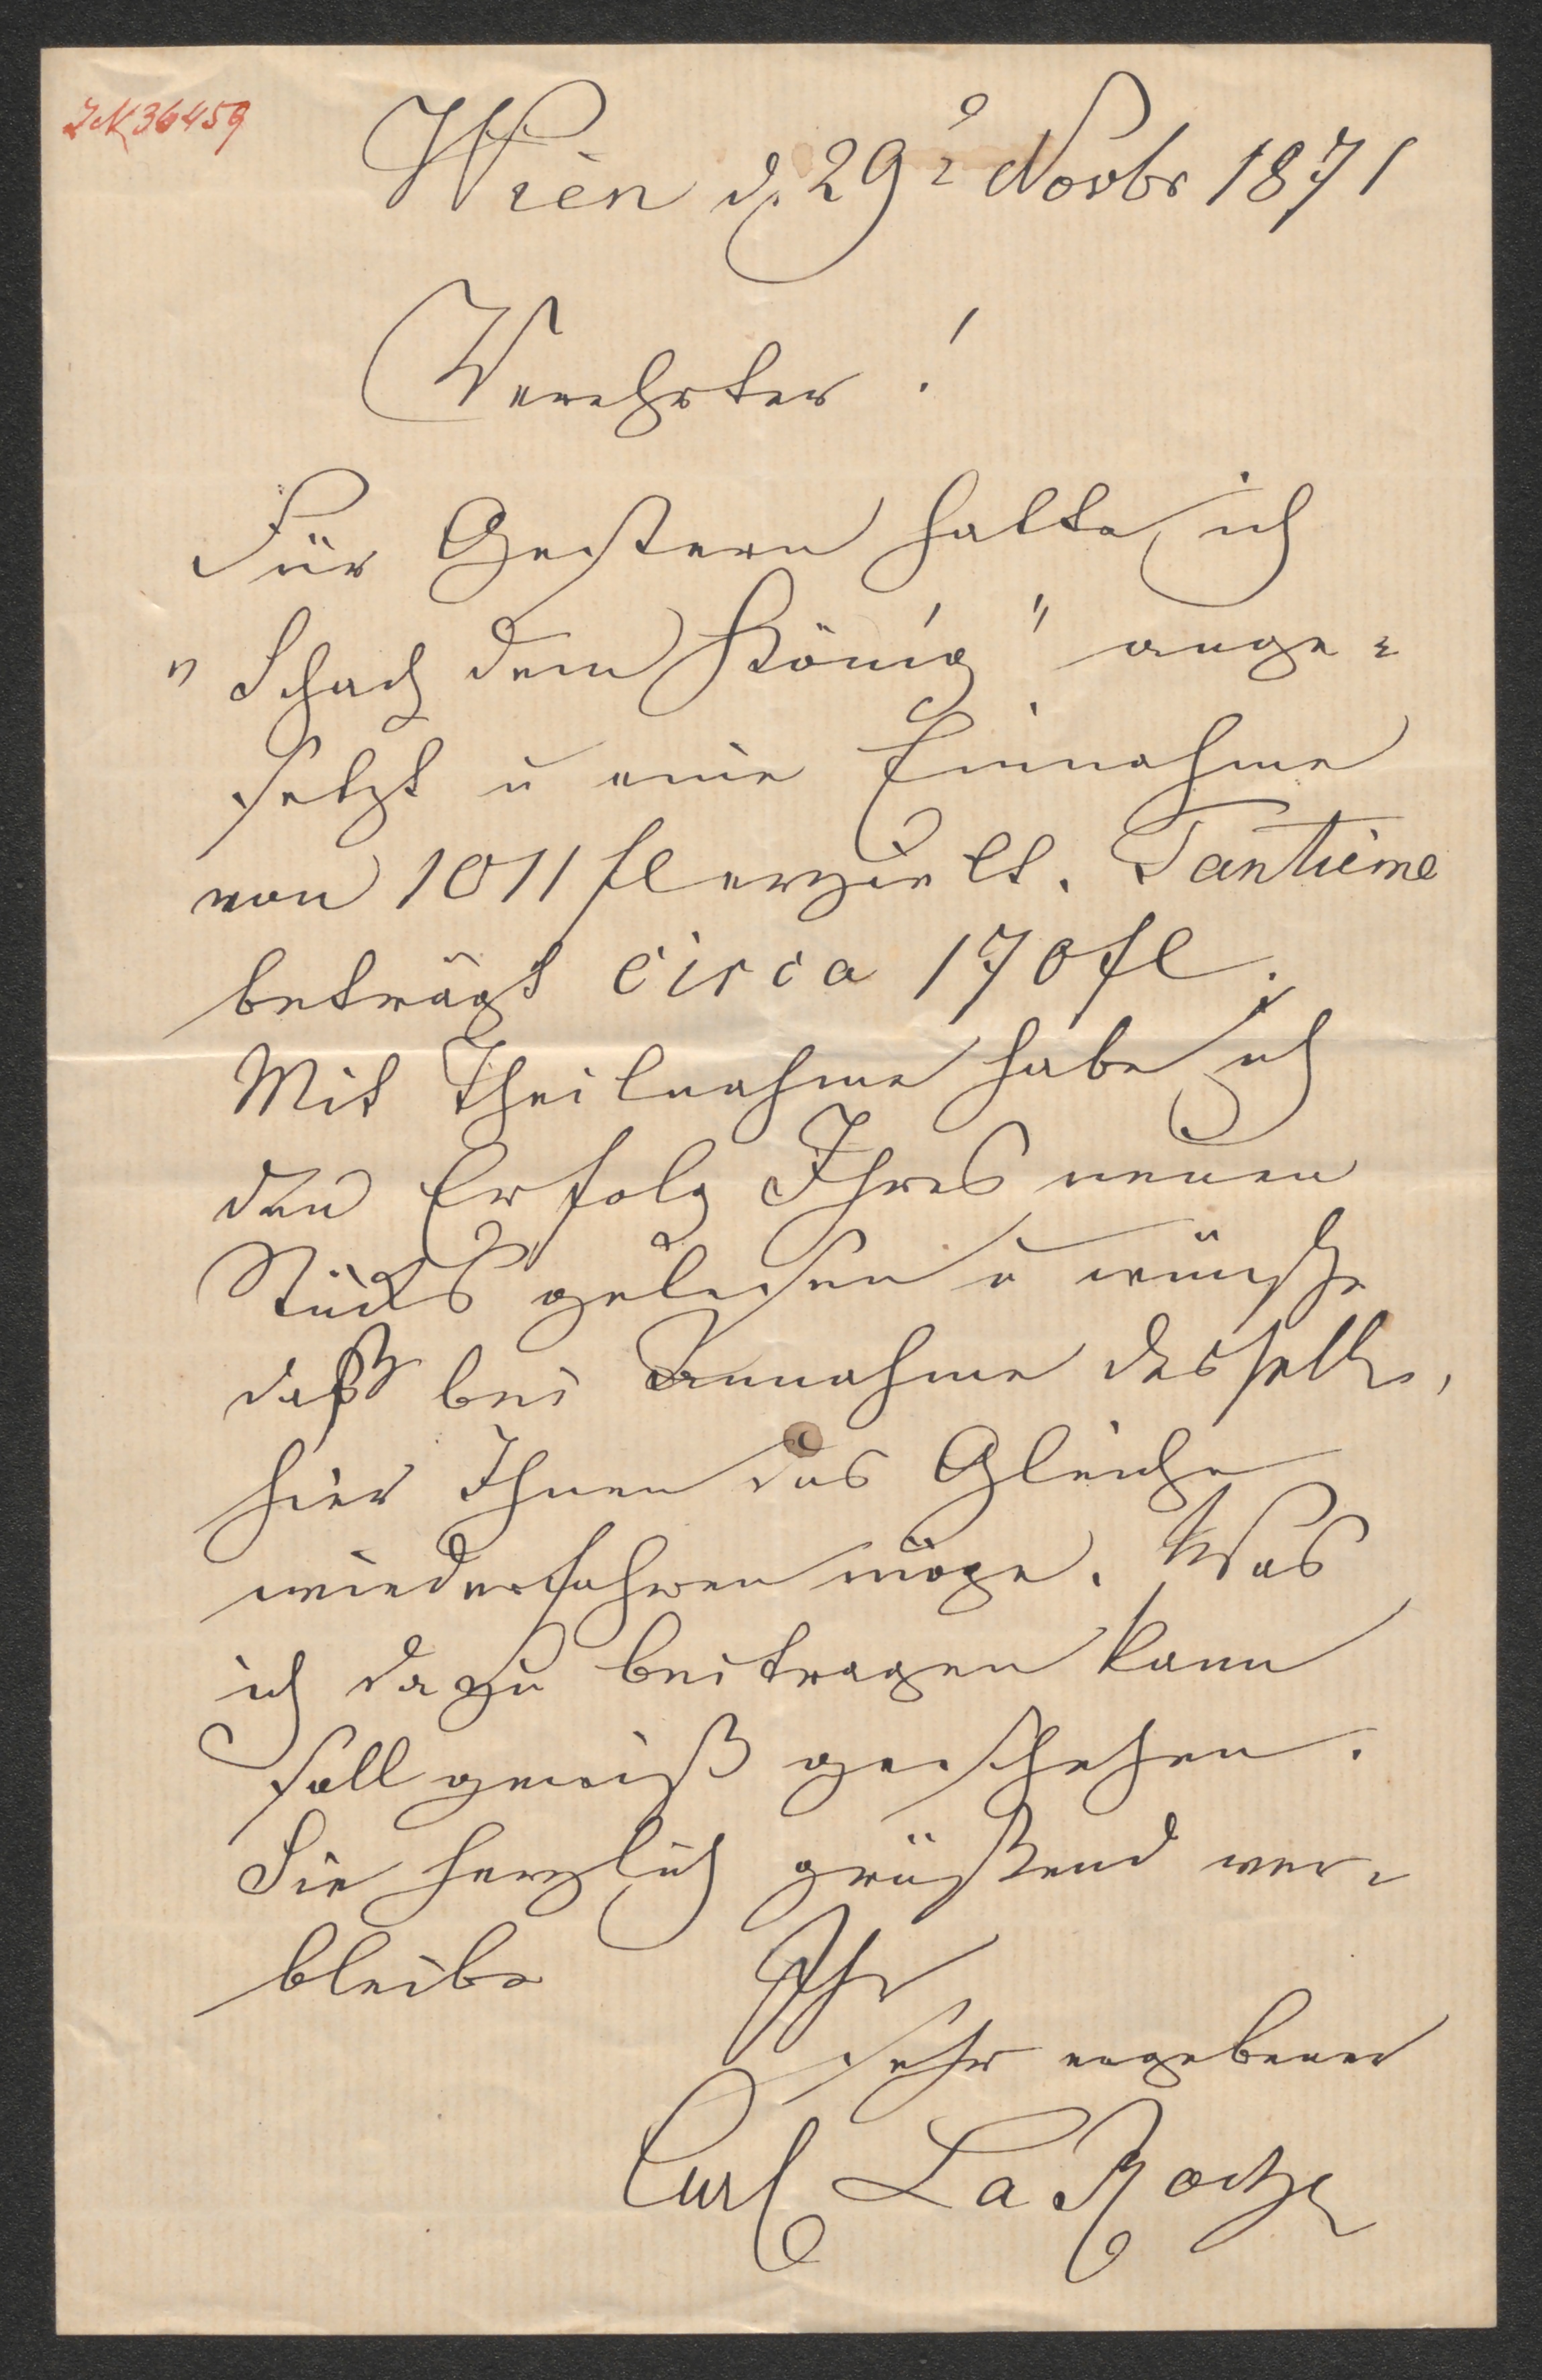 IN 36459
Wien d. 29t Novbr 1871
Verehrter!
Für Gestern hatte ich
"Schach dem König" ange=
setzt u eine Einnahme
von 1011 fl erzielt. Tantième
beträgt circa 170 fl.
Mit Theilnahme habe ich
den Erfolg Ihres neuen
Stücks gelesen u wünsche
daß bei Annahme desselben,
hier Ihnen das Gleiche
wiederfahren möge. Was
ich dazu beitragen kann
soll gewiß geschehen.
Sie herzlich grüßend ver=
bleibe Ihr
sehr ergebener
Carl La Roche